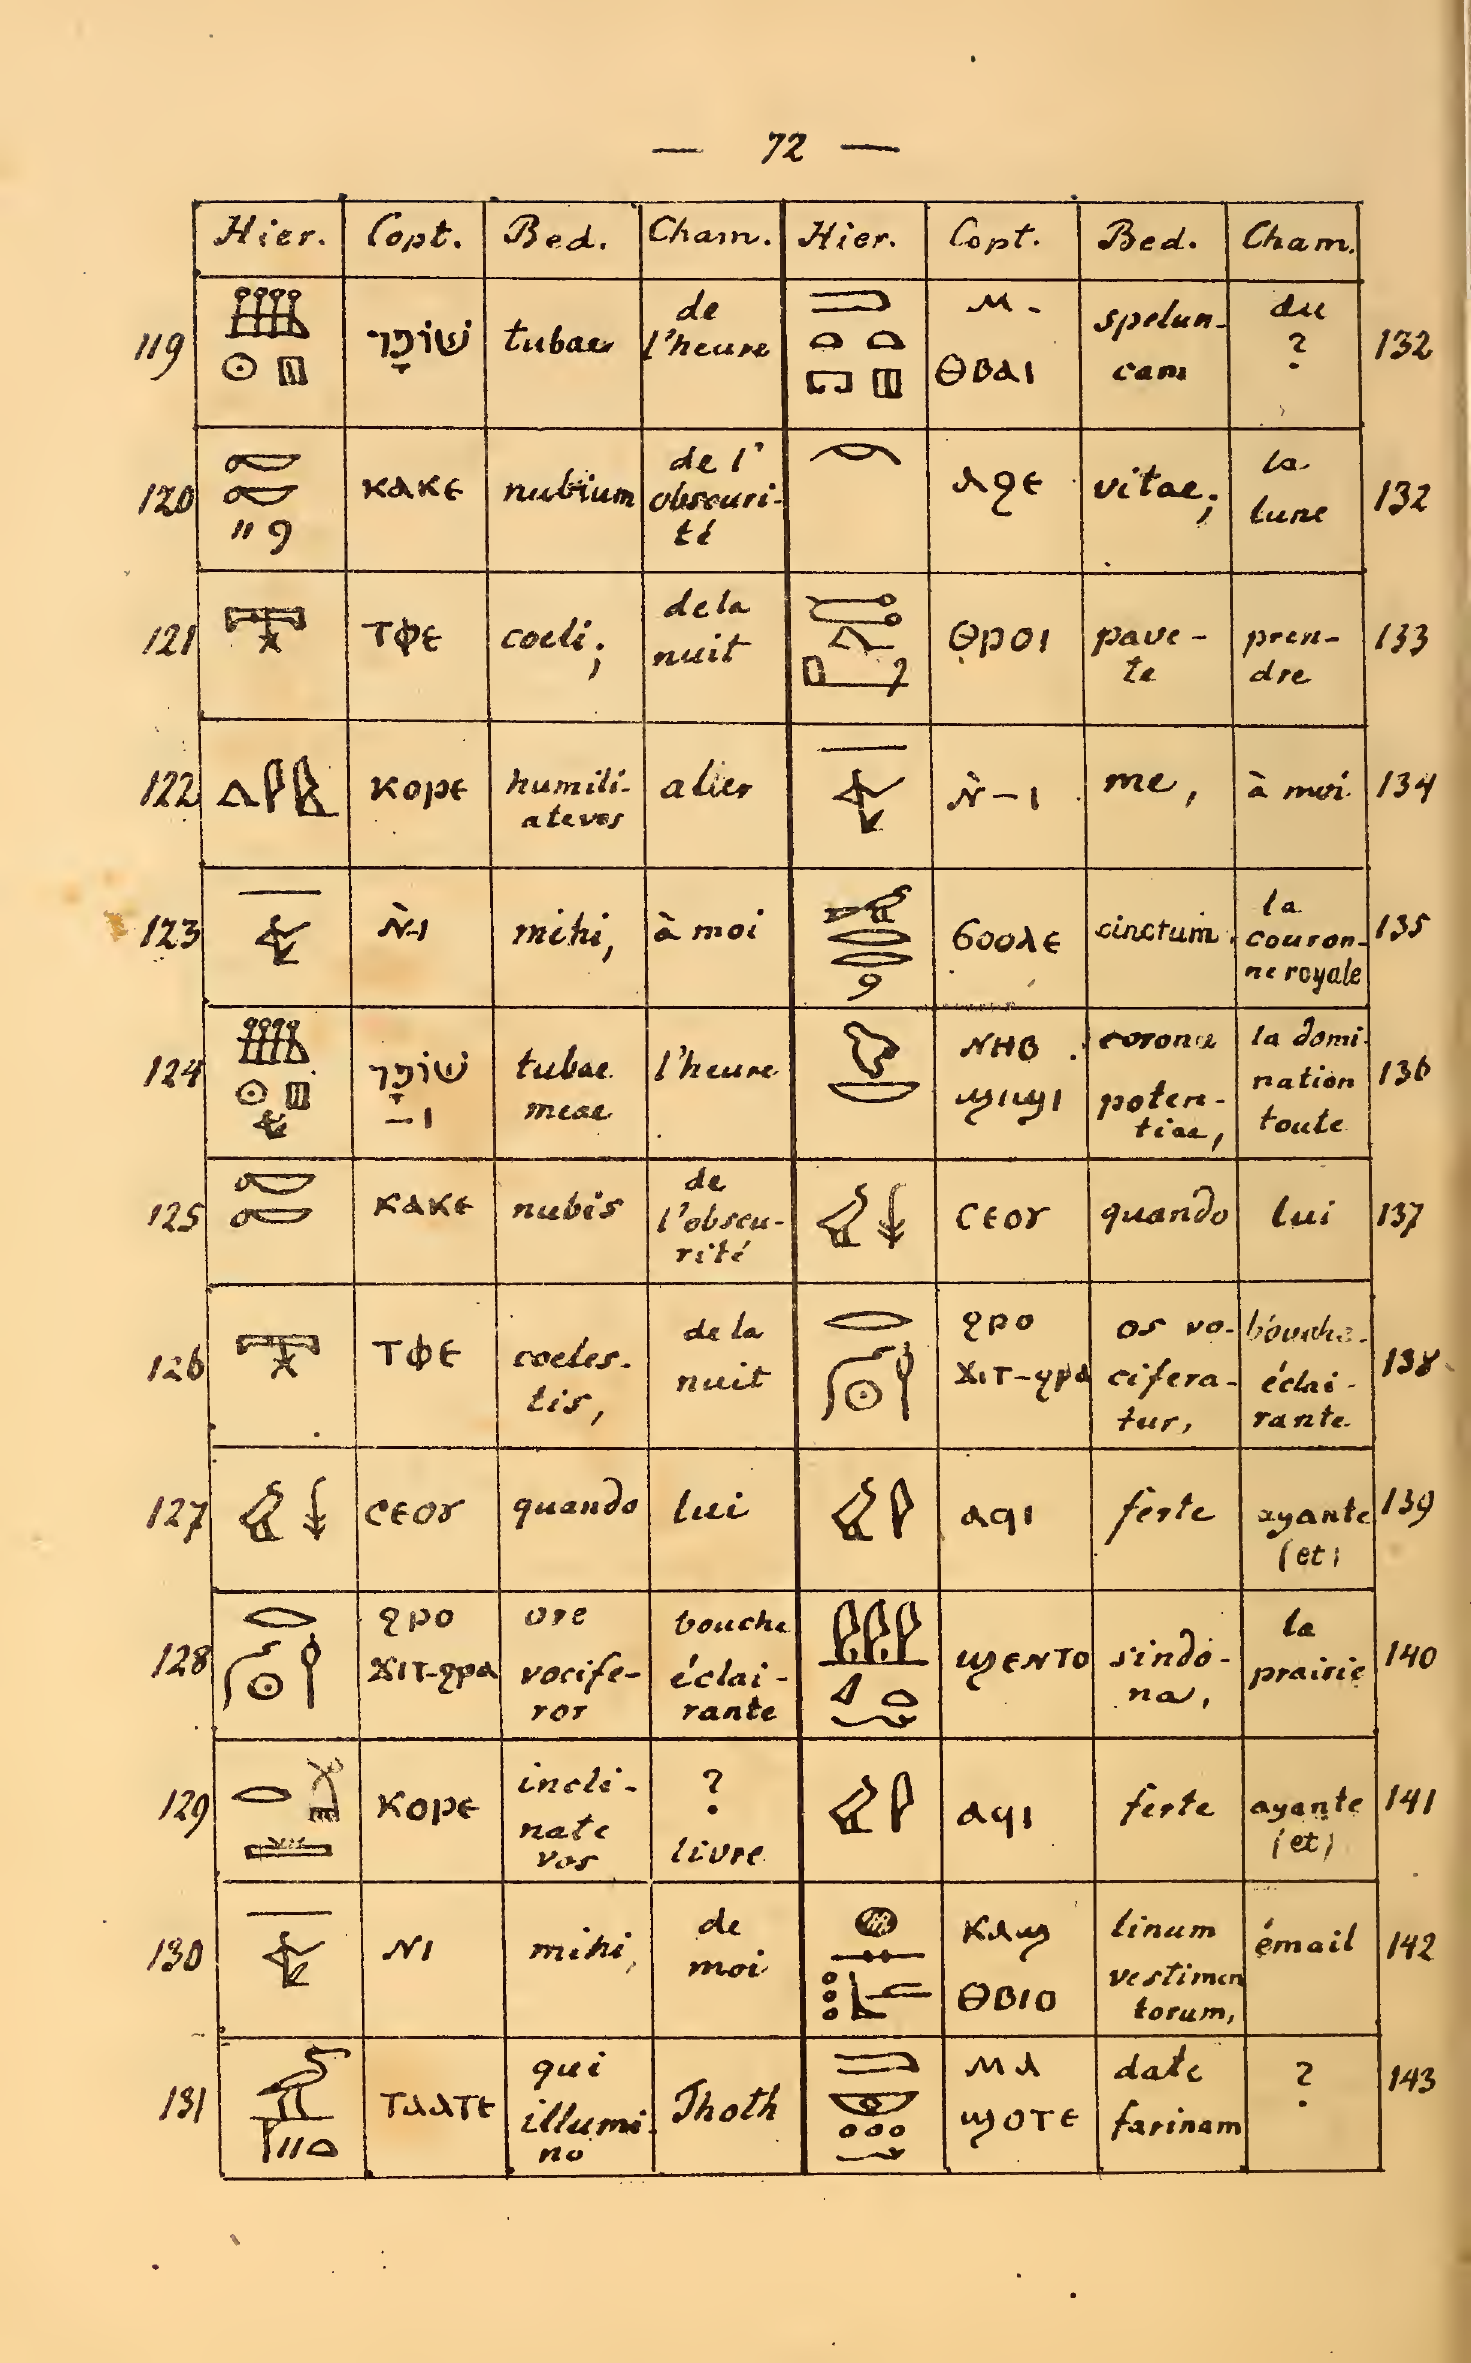 — 72 —
Hier. Copt. Bed. Cham. Hier. Copt. Bed. Cham.
119 שׁוֹפָר tubae de l'heure ⲙ- ⲑⲃⲁⲓ spelun- cam du ? 132
120 ⲕⲁⲕⲉ nubium de l' obscuri- té ⲁϩⲉ vitae; la lune 132
121 ⲧⲫⲉ coeli; de la nuit ⲑⲣⲟⲓ pave- te pren- dre 133
122 ⲕⲟⲣⲉ humili- ate vos aller ⲛ̀-ⲓ me, à moi 134
123 ⲛ̀-ⲓ mihi, à moi ϭⲟⲟⲗⲉ cinctum la couron- ne royale 135
124 שׁוֹפָר -ⲓ tubae meae l'heure ⲛⲏⲃ ϣⲓϣⲓ corona poten- tiae, la domi- nation toute 136
125 ⲕⲁⲕⲉ nubis de l'obscu- rité ⲥⲉⲟⲩ quando lui 137
126 ⲧⲫⲉ coeles- tis, de la nuit ϩⲣⲟ ϫⲓⲧ-ϩⲣⲁ os vo- cifera- tur, bouche éclai- rante 138
127 ⲥⲉⲟⲩ quando lui ⲁϥⲓ ferte ayante (et) 139
128 ϩⲣⲟ ϫⲓⲧ-ϩⲣⲁ ore vocife- ror bouche éclai- rante ϣⲉⲛⲧⲟ sindo- na, la prairie 140
129 ⲕⲟⲣⲉ incli- nate vos ? livre ⲁϥⲓ ferte ayante (et) 141
130 ⲛⲓ mihi, de moi ⲕⲁϣ ⲑⲃⲓⲟ linum vestimen torum, émail 142
131 ⲧⲁⲁⲧⲉ qui illumi- no Thoth ⲙⲁ ϣⲟⲧⲉ date farinam ? 143